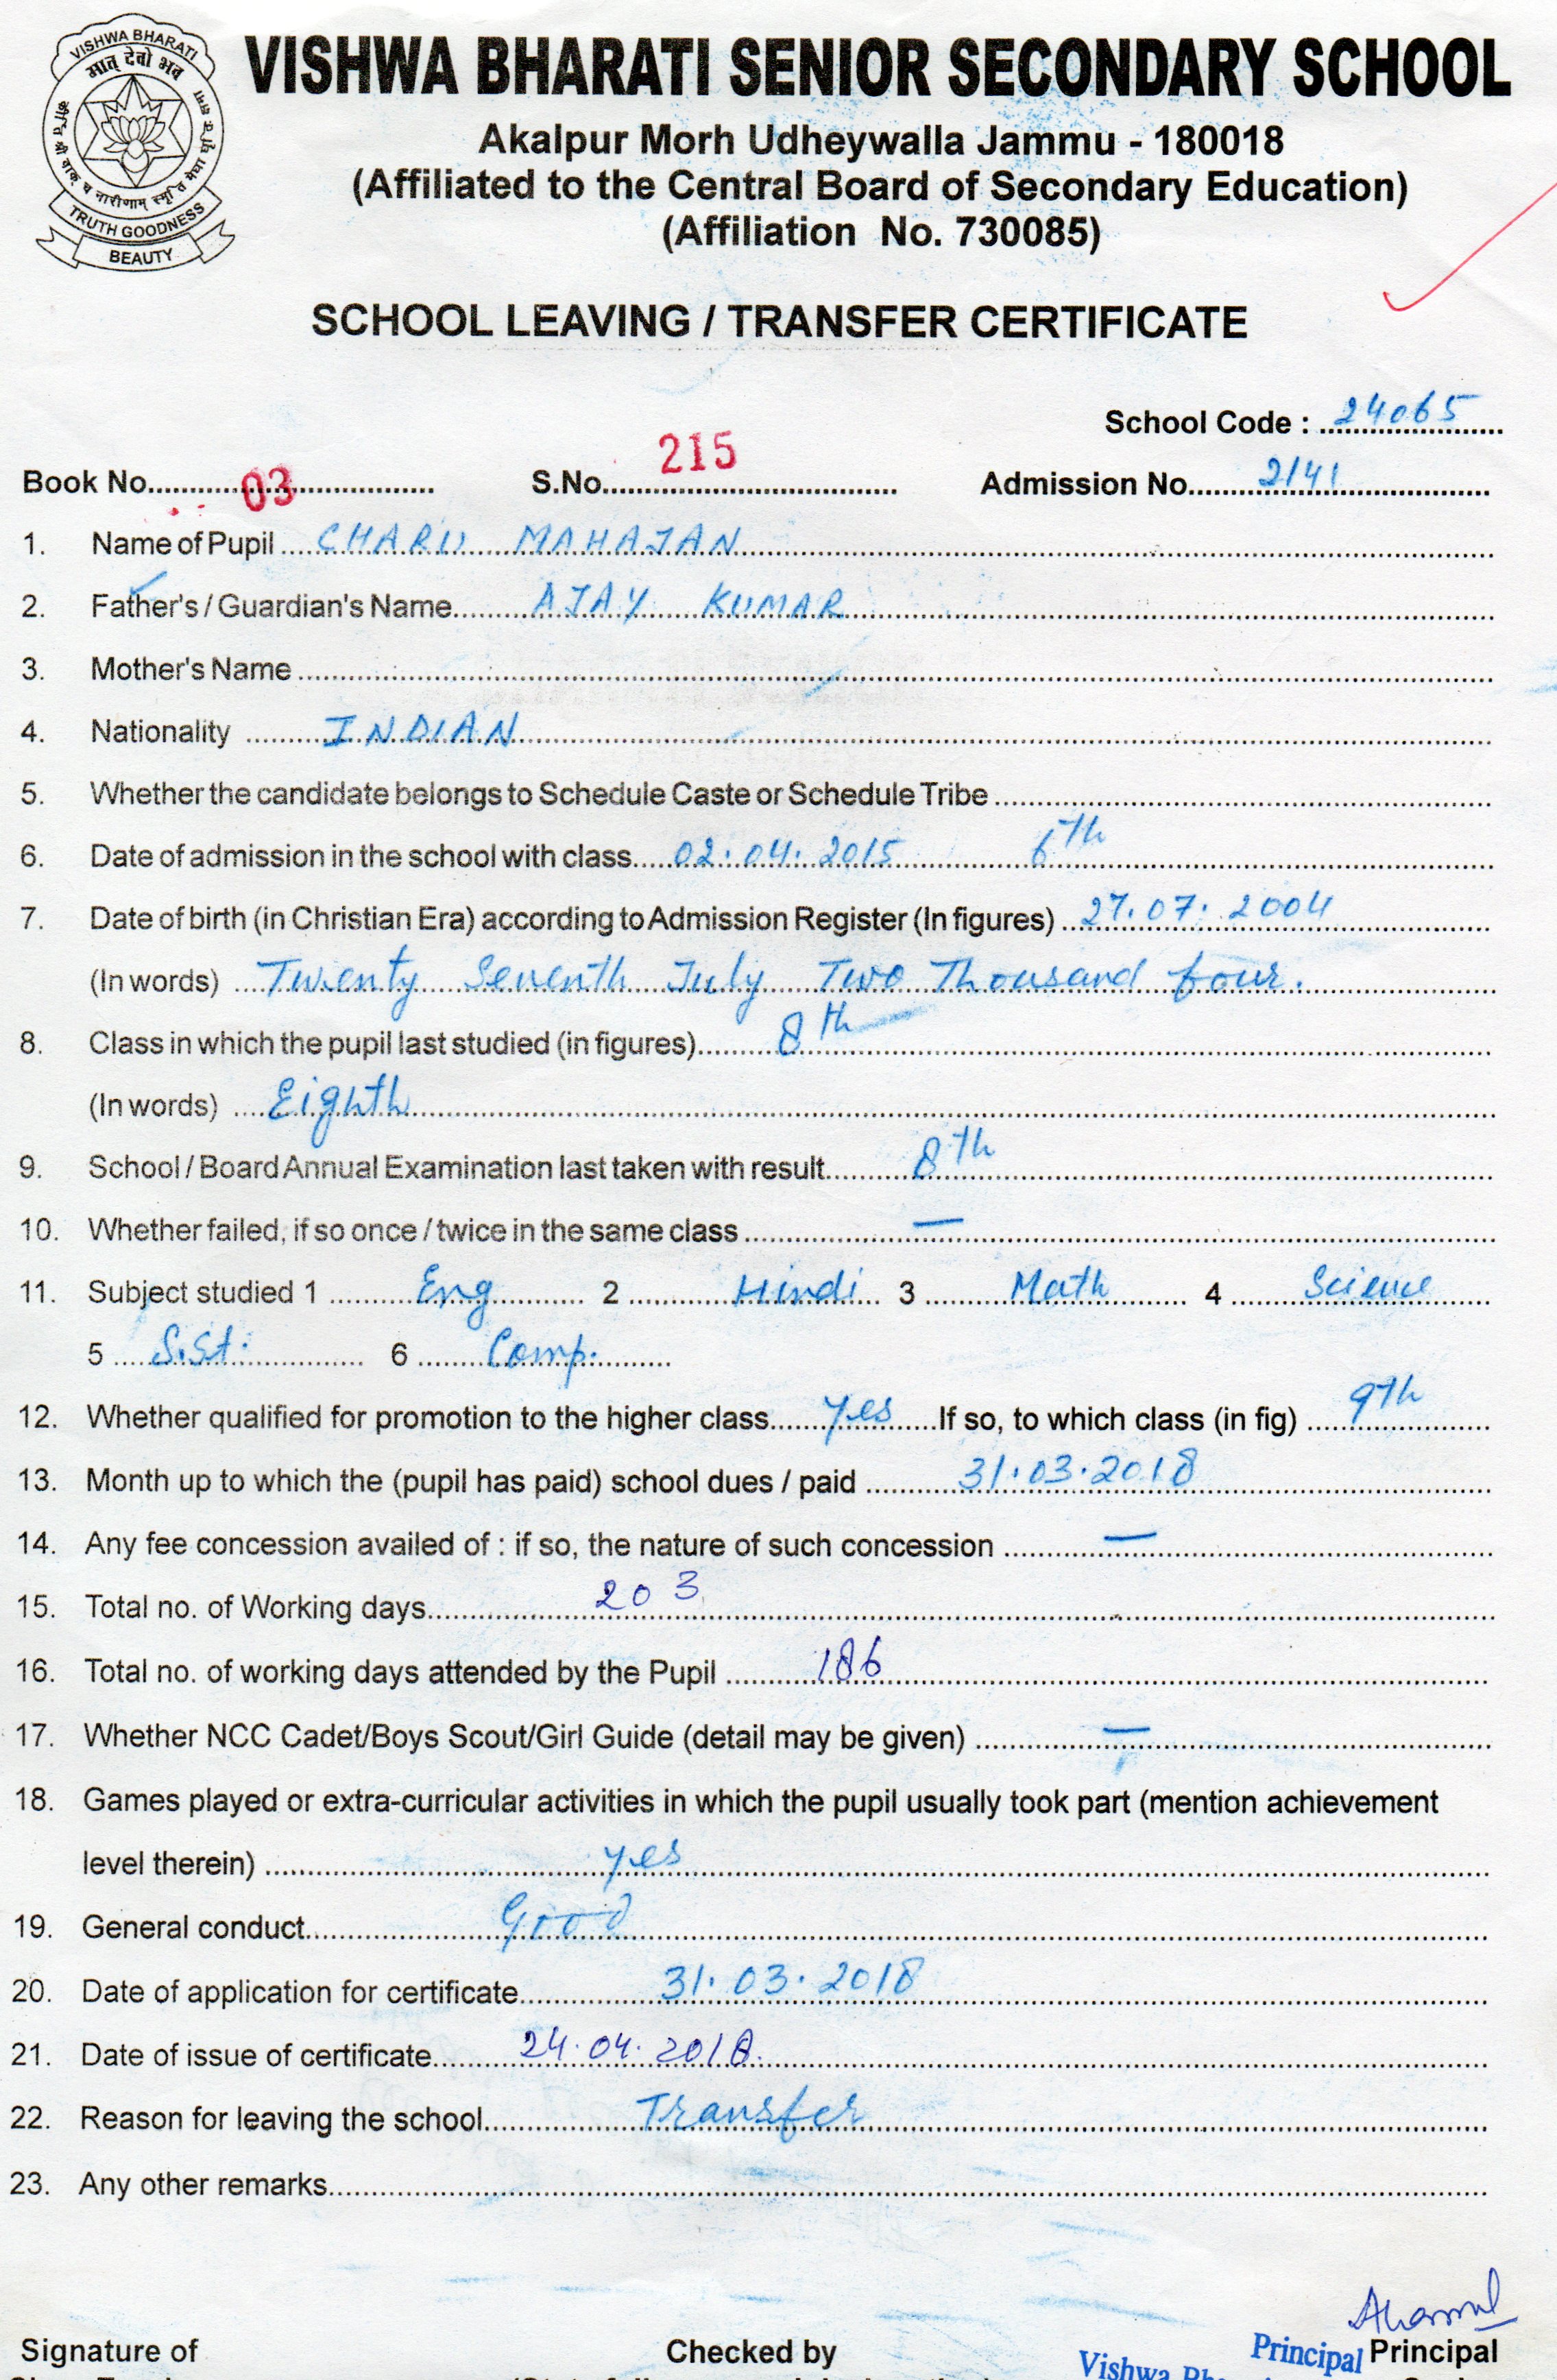 VISHWA BHARATI
मातृ देवो भव
TRUTH GOODNESS
BEAUTY
VISHWA BHARATI SENIOR SECONDARY SCHOOL
Akalpur Morh Udheywalla Jammu - 180018
(Affiliated to the Central Board of Secondary Education)
(Affiliation No. 730085)
SCHOOL LEAVING / TRANSFER CERTIFICATE
School Code : 24065
Book No. 03 S.No. 215 Admission No. 2141
1. Name of Pupil CHARU MAHAJAN
2. Father's / Guardian's Name AJAY KUMAR
3. Mother's Name
4. Nationality INDIAN
5. Whether the candidate belongs to Schedule Caste or Schedule Tribe
6. Date of admission in the school with class 02.04.2015 6th
7. Date of birth (in Christian Era) according to Admission Register (In figures) 27.07.2004
(In words) Twenty Seventh July Two Thousand four.
8. Class in which the pupil last studied (in figures) 8th
(In words) Eighth
9. School / Board Annual Examination last taken with result 8th
10. Whether failed, if so once / twice in the same class —
11. Subject studied 1 Eng 2 Hindi 3 Math 4 Science
5 S.St. 6 Comp.
12. Whether qualified for promotion to the higher class yes If so, to which class (in fig) 9th
13. Month up to which the (pupil has paid) school dues / paid 31.03.2018
14. Any fee concession availed of : if so, the nature of such concession —
15. Total no. of Working days 203
16. Total no. of working days attended by the Pupil 186
17. Whether NCC Cadet/Boys Scout/Girl Guide (detail may be given) —
18. Games played or extra-curricular activities in which the pupil usually took part (mention achievement
level therein) yes
19. General conduct Good
20. Date of application for certificate 31.03.2018
21. Date of issue of certificate 24.04.2018.
22. Reason for leaving the school Transfer
23. Any other remarks
Signature of Checked by Principal Principal
Vishwa